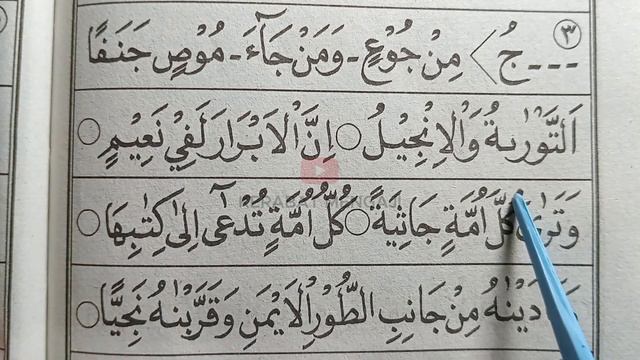 ٣
--- جُ〈 مِنْ جُوْعٍ - وَمَنْ جَآءَ - مُوْصٍ جَنَفًا
اَلتَّوْرٰىةُ وَالْاِنْجِيْلُ ○ اِنَّ الْاَبْرَارَ لَفِيْ نَعِيْمٍ ○
وَتَرٰى كُلَّ اُمَّةٍ جَاثِيَةً ○ كُلُّ اُمَّةٍ تُدْعٰٓى اِلٰى كِتٰبِهَا ○
دَيْنٰهُ مِنْ جَانِبِ الطُّوْرِ الْاَيْمَنِ وَقَرَّبْنٰهُ نَجِيًّا ○